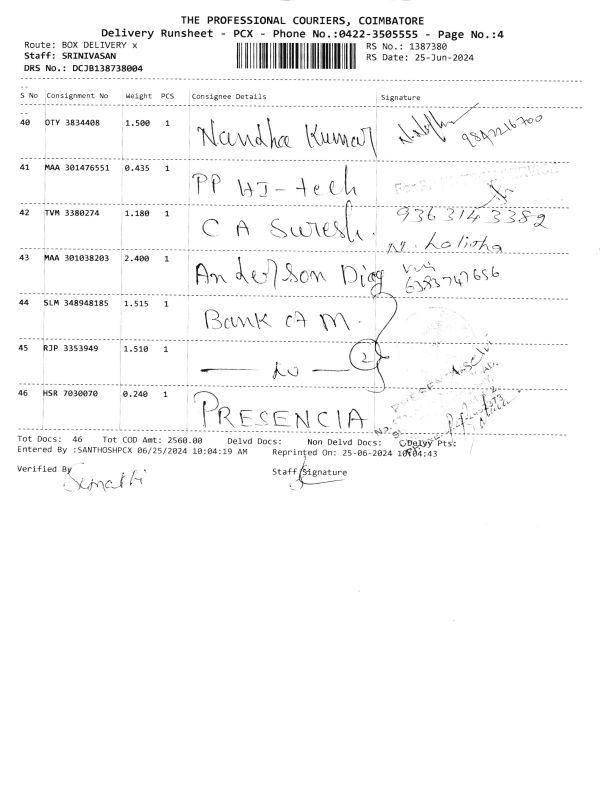 THE PROFESSIONAL COURIERS, COIMBATORE
Delivery Runsheet - PCX - Phone No.:0422-3505555 - Page No.:4
Route: BOX DELIVERY x RS No.: 1387380
Staff: SRINIVASAN RS Date: 25-Jun-2024
DRS No.: DCJB138738004
S No Consignment No Weight PCS Consignee Details Signature
40 OTY 3834408 1.500 1 Nandha Kumar 9842216700
41 MAA 301476551 0.435 1 PP HI-tech
42 TVM 3380274 1.180 1 C A Suresh. 9363143382
N. Lalitha
43 MAA 301038203 2.400 1 Anderson Diag 6383747656
44 SLM 348948185 1.515 1 Bank of M.
45 RJP 3353949 1.510 1 — do — 2
46 HSR 7030070 0.240 1 PRESENCIA
Tot Docs: 46 Tot COD Amt: 2560.00 Delvd Docs: Non Delvd Docs: C Delvy Pts:
Entered By :SANTHOSHPCX 06/25/2024 10:04:19 AM Reprinted On: 25-06-2024 10:04:43
Verified By Staff Signature
Sumathi